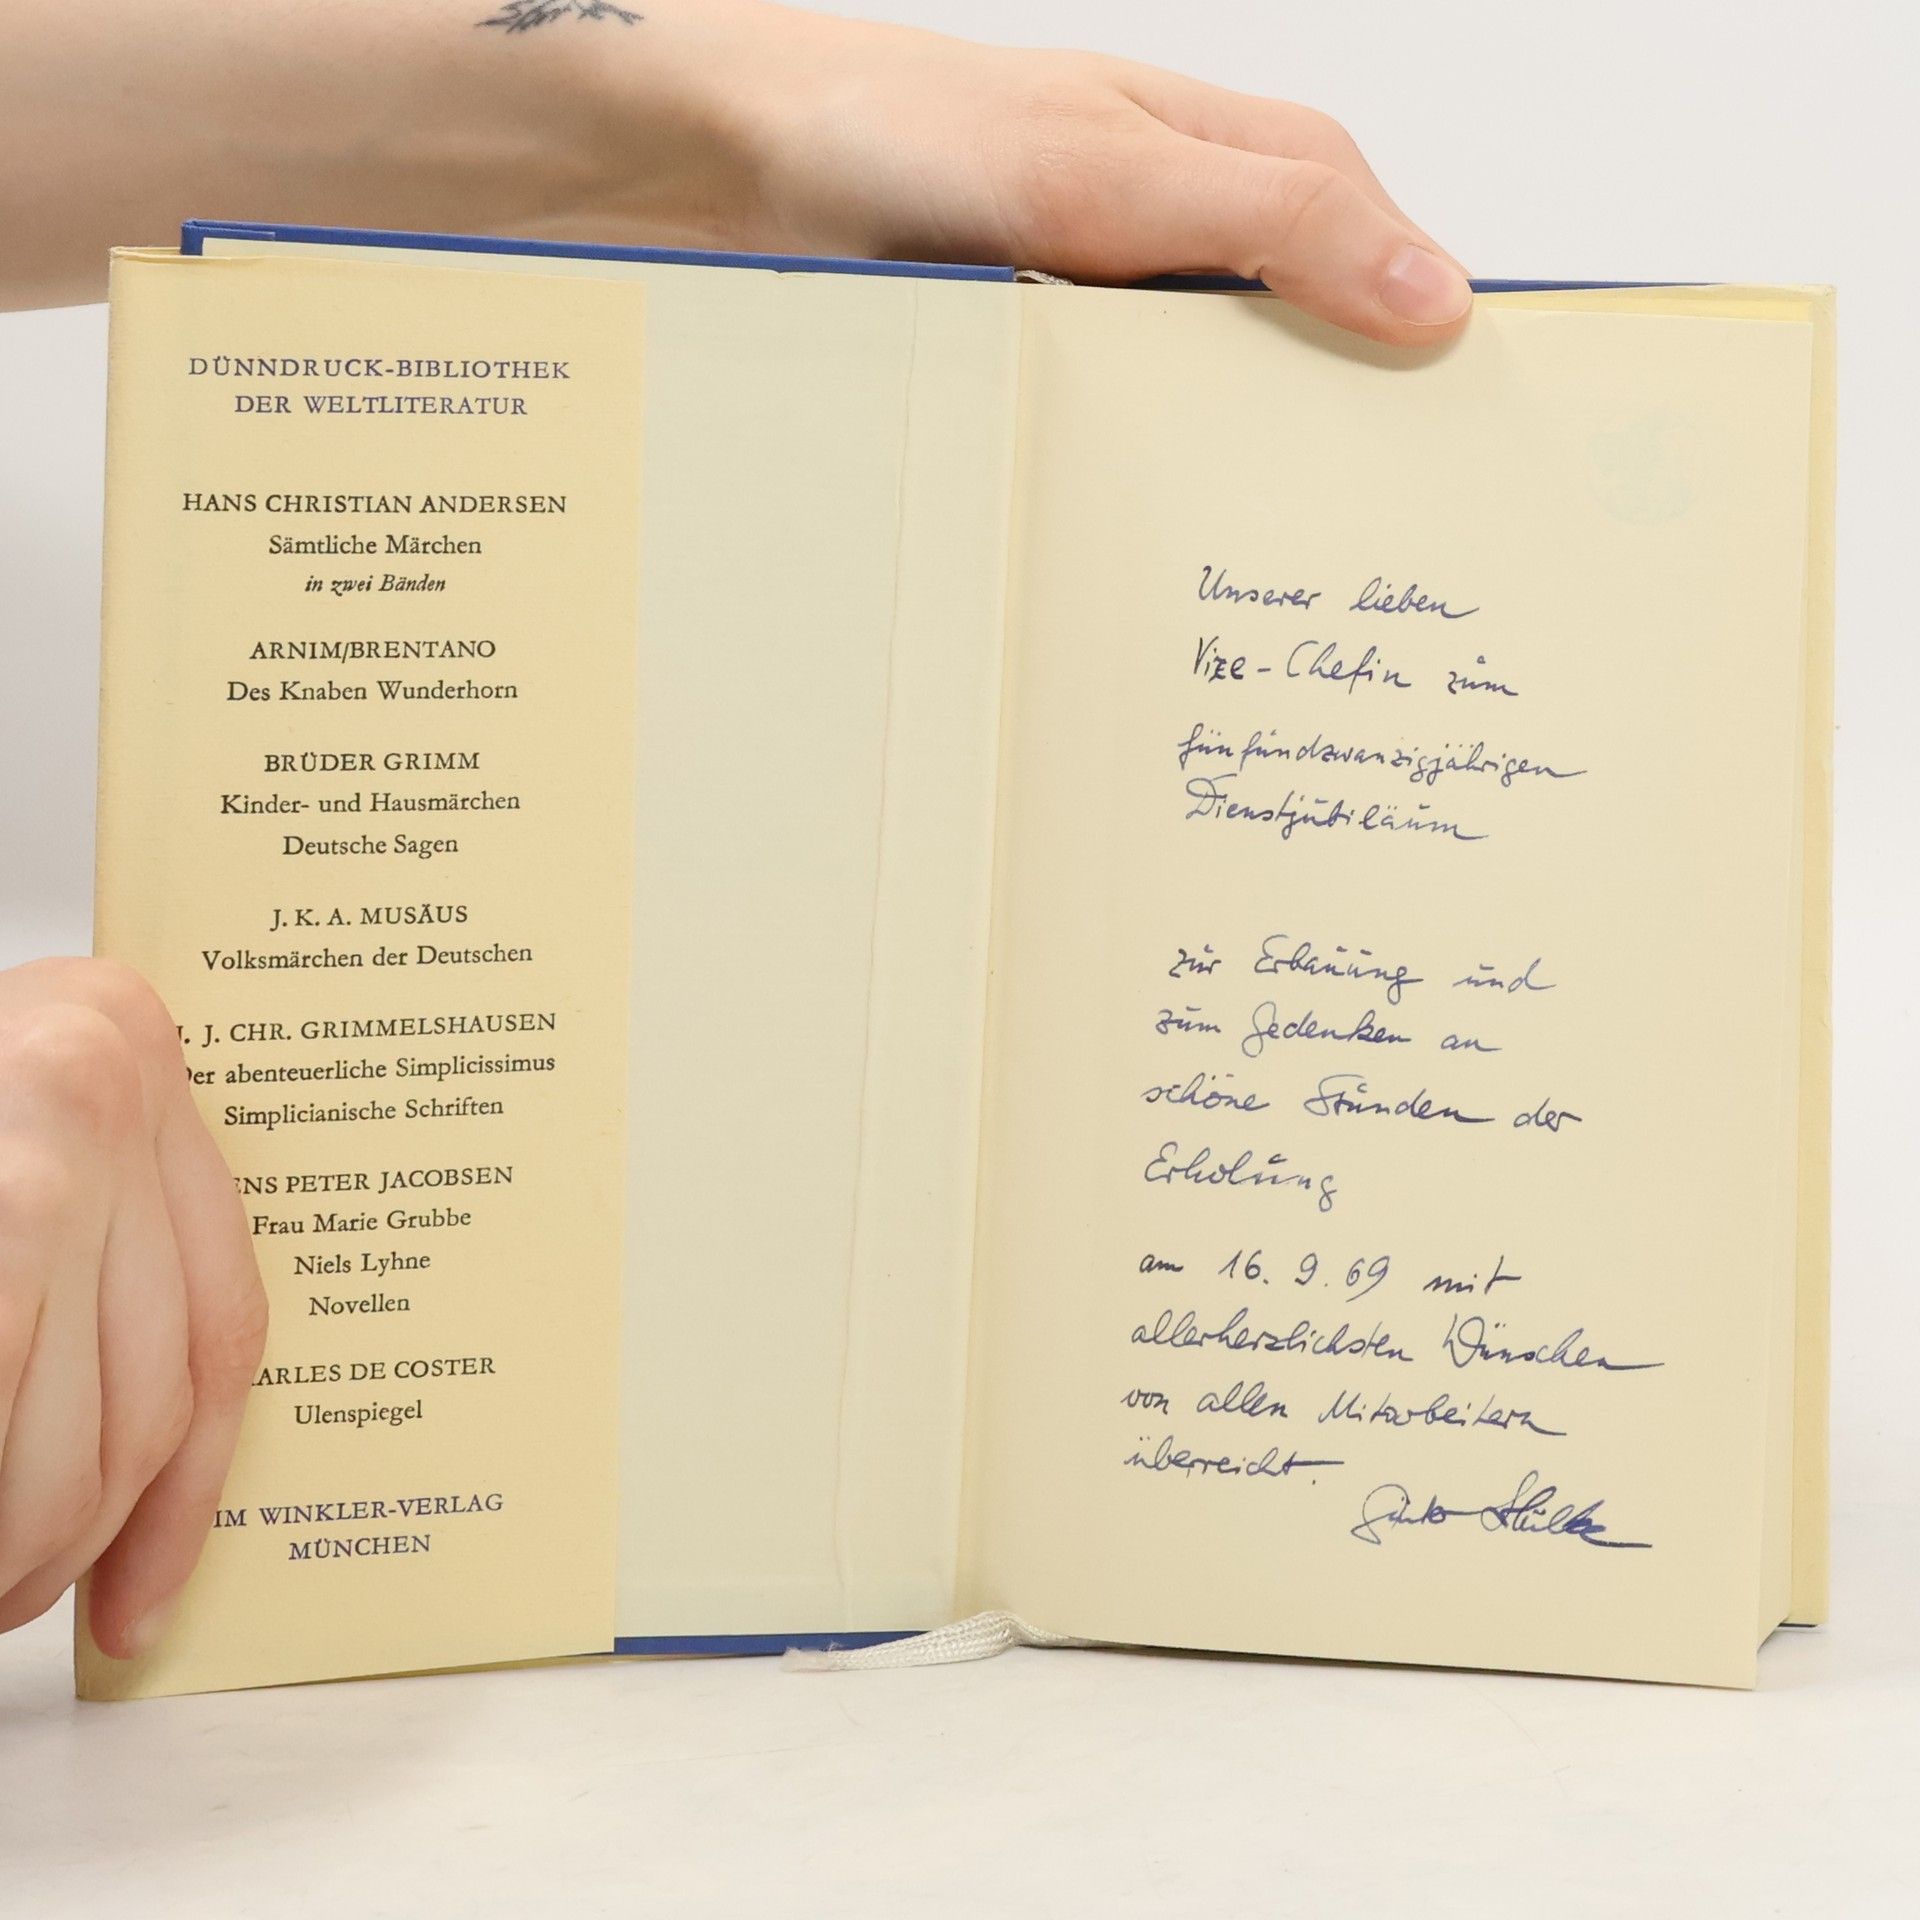 DÜNNDRUCK-BIBLIOTHEK
DER WELTLITERATUR
HANS CHRISTIAN ANDERSEN
Sämtliche Märchen
in zwei Bänden
ARNIM/BRENTANO
Des Knaben Wunderhorn
BRÜDER GRIMM
Kinder- und Hausmärchen
Deutsche Sagen
J. K. A. MUSÄUS
Volksmärchen der Deutschen
J. CHR. GRIMMELSHAUSEN
er abenteuerliche Simplicissimus
Simplicianische Schriften
ENS PETER JACOBSEN
Frau Marie Grubbe
Niels Lyhne
Novellen
ARLES DE COSTER
Ulenspiegel
IM WINKLER-VERLAG
MÜNCHEN
Unserer lieben
Vize-Chefin zum
fünfundzwanzigjährigen
Dienstjubiläum
zur Erbauung und
zum Gedenken an
schöne Stunden der
Erholung
am 16. 9. 69 mit
allerherzlichsten Wünschen
von allen Mitarbeitern
überreicht.